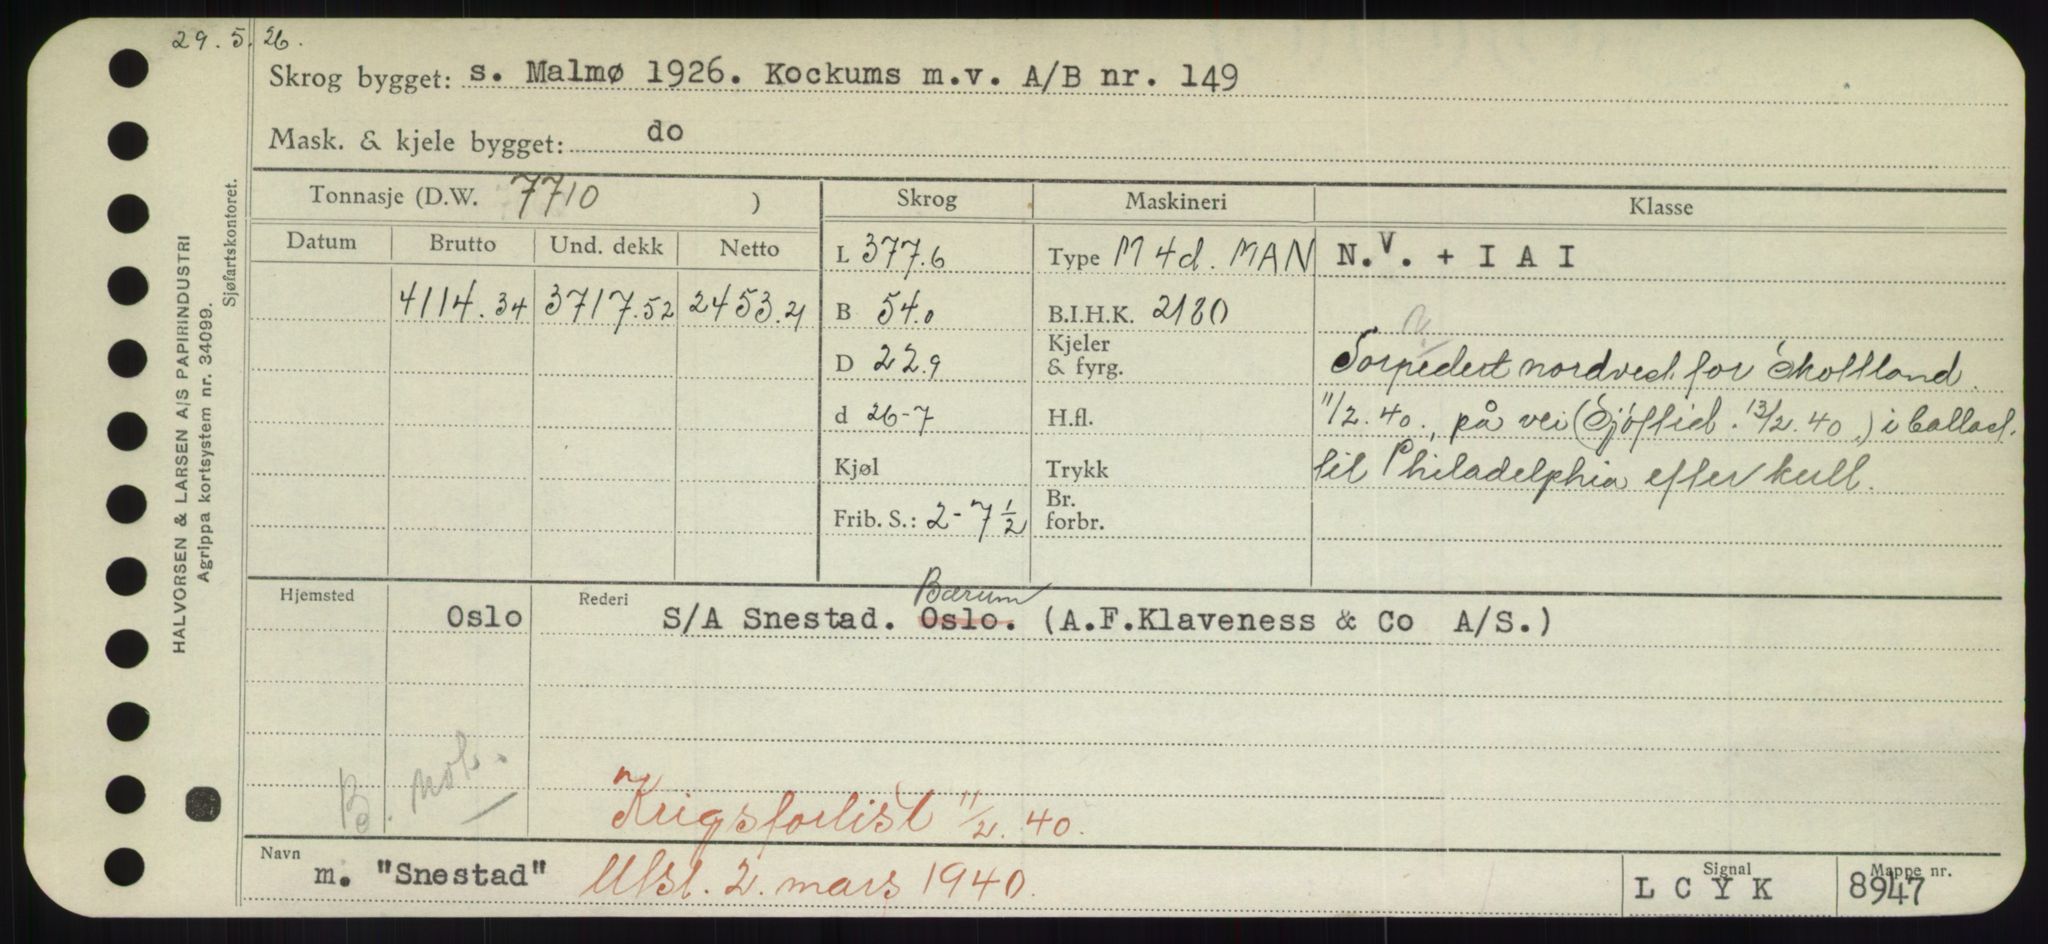 29.5.26.
Skrog bygget: s. Malmø 1926. Kockums m.v. A/B nr. 149
Mask. & kjele bygget: do
Tonnasje (D.W. 7710 ) Skrog Maskineri Klasse
Datum Brutto Und. dekk Netto
L 377.6 Type M 4d. MAN N.V. + I A I
4114.34 3717.52 2453.21 B 54.0 B.I.H.K. 2180
D 22.9 Kjeler & fyrg. Torpedert nordvest for Skottland
d 26-7 H.fl. 11/2.40., på vei (Sjöftid. 13/2.40.) i ballast
Kjøl Trykk til Philadelphia efter kull.
Frib. S.: 2-7½ Br. forbr.
Hjemsted Rederi Bærum
Oslo S/A Snestad. Oslo. (A.F.Klaveness & Co A/S.)
B. not.
Krigsforlist 11/2.40.
Navn Signal Mappe nr.
m. "Snestad" Utsl. 2. mars 1940. L C Y K 8947
HALVORSEN & LARSEN A/S PAPIRINDUSTRI
Agrippa kortsystem nr. 34099.
Sjøfartskontoret.